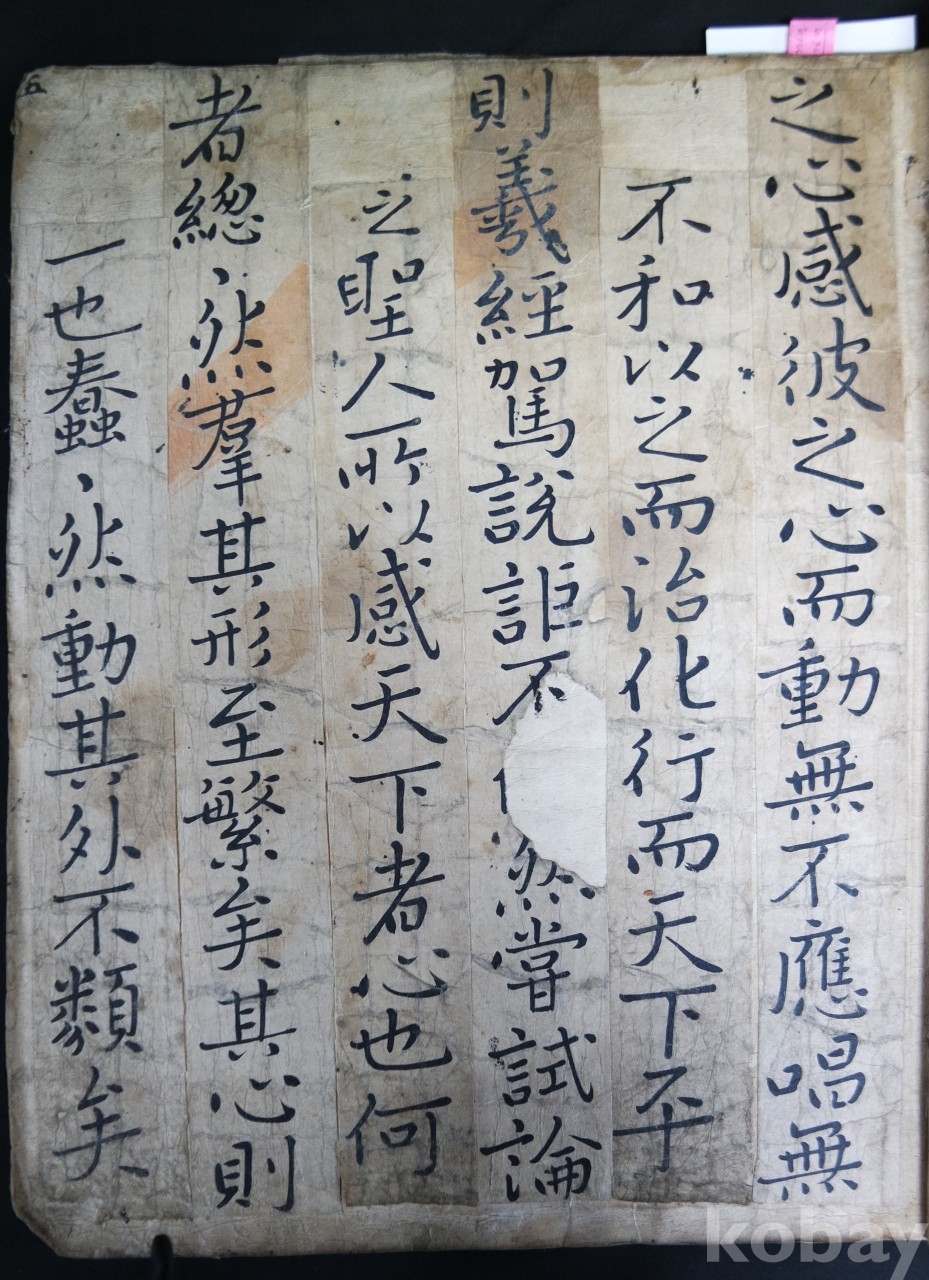 之心感彼之心而動無不應唱無
不和以之而治化行而天下平
則羲經駕說詎不然嘗試論
之聖人所以感天下者心也何
者總丶然羣其形至繁矣其心則
一也蠢丶然動其外不類矣
kobay